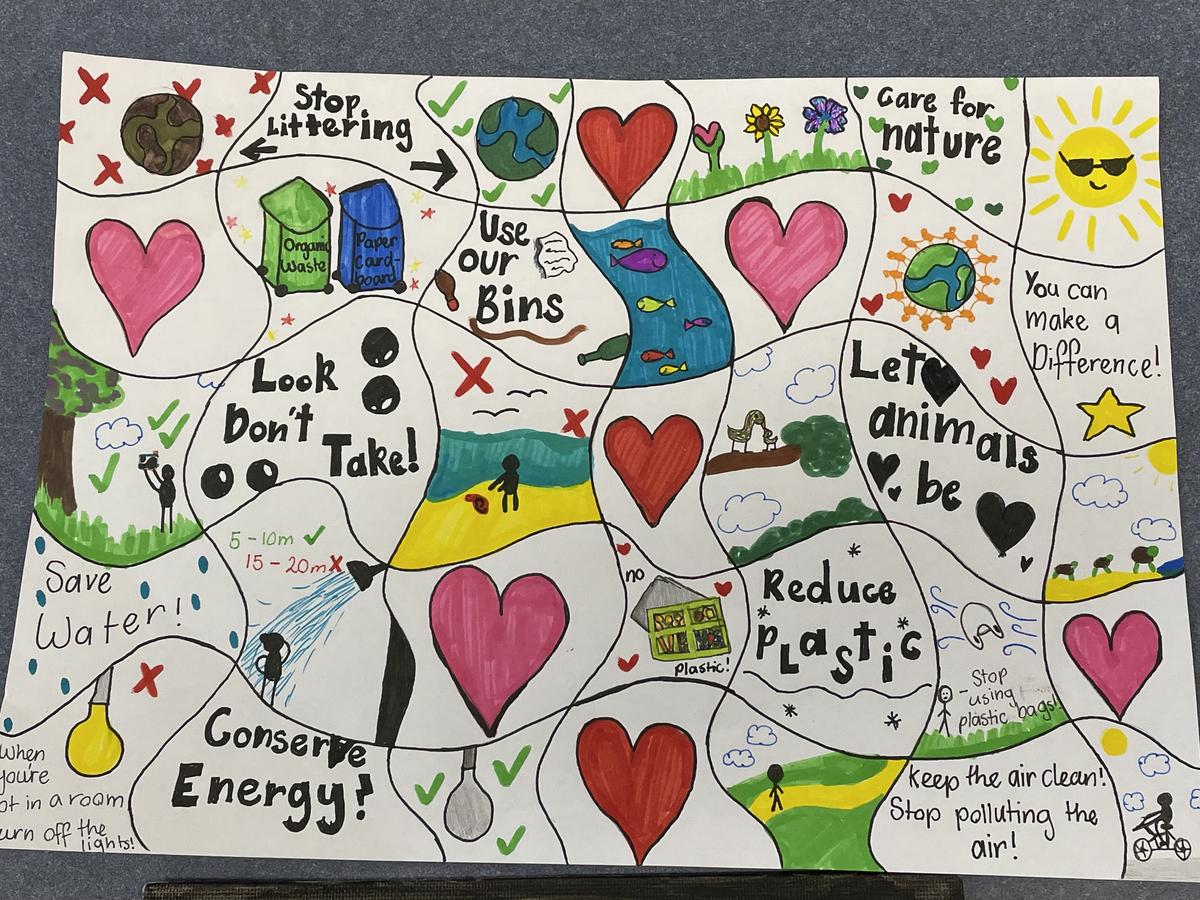 Stop
Littering
Care for
nature
Organic
Waste
Paper
Card-
board
Use
our
Bins
You can
make a
Difference!
Look
Don't
Take!
Let
animals
be
5-10m
15-20m
Save
Water!
no
plastic!
Reduce
Plastic
Stop
-using
plastic bags!
Conserve
Energy!
When
you're
in a room
off the
lights!
Keep the air clean!
Stop polluting the
air!